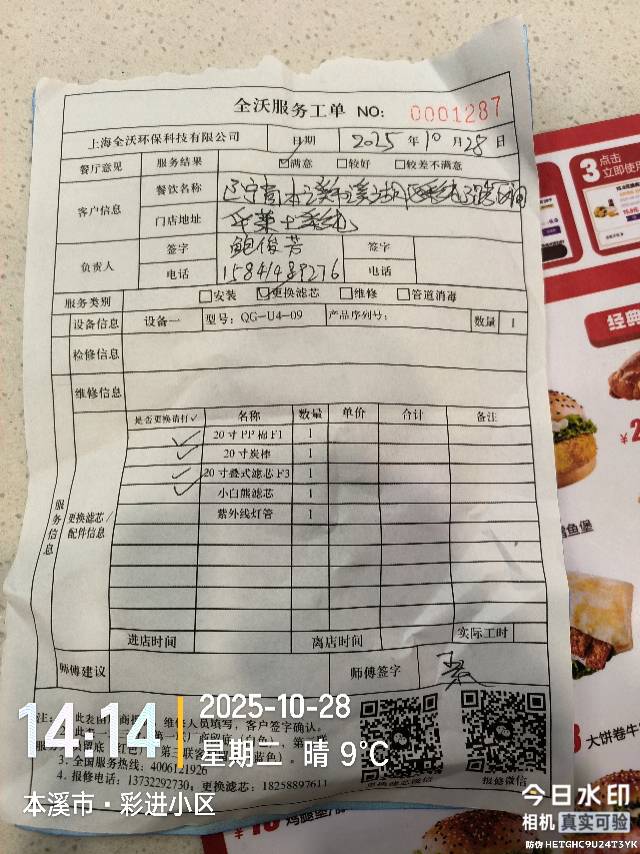 全沃服务工单 NO: 0001287
上海全沃环保科技有限公司 日期 2025 年 10 月 28 日
餐厅意见 服务结果 ☑满意 □较好 □较差不满意
客户信息 餐饮名称 辽宁省本溪
门店地址
负责人 签字 鲍俊芳 签字
电话 15841489276 电话
服务类别 □安装 ☑更换滤芯 □维修 □管道消毒
设备信息 设备一 型号: QG-U4-09 产品序列号: 数量 1
检修信息
维修信息
服务信息
更换滤芯/配件信息
是否更换请打✓ 名称 数量 单价 合计 备注
✓ 20寸PP棉F1 1
✓ 20寸炭棒 1
✓ 20寸叠式滤芯F3 1
✓ 小白熊滤芯 1
紫外线灯管 1
进店时间 离店时间 实际工时
师傅建议 师傅签字
维修人员填写，客户签字确认。
3、全国服务热线: 4006121926
4、报修电话: 13732292730; 更换滤芯: 18258897611
更换滤芯微信 报修微信
14:14 2025-10-28
星期二 晴 9℃
本溪市·彩进小区
3 点击
立即使用
经典
大饼卷牛
鸡腿堡
今日水印
相机 真实可验
防伪 HETGHC9U24T3YK